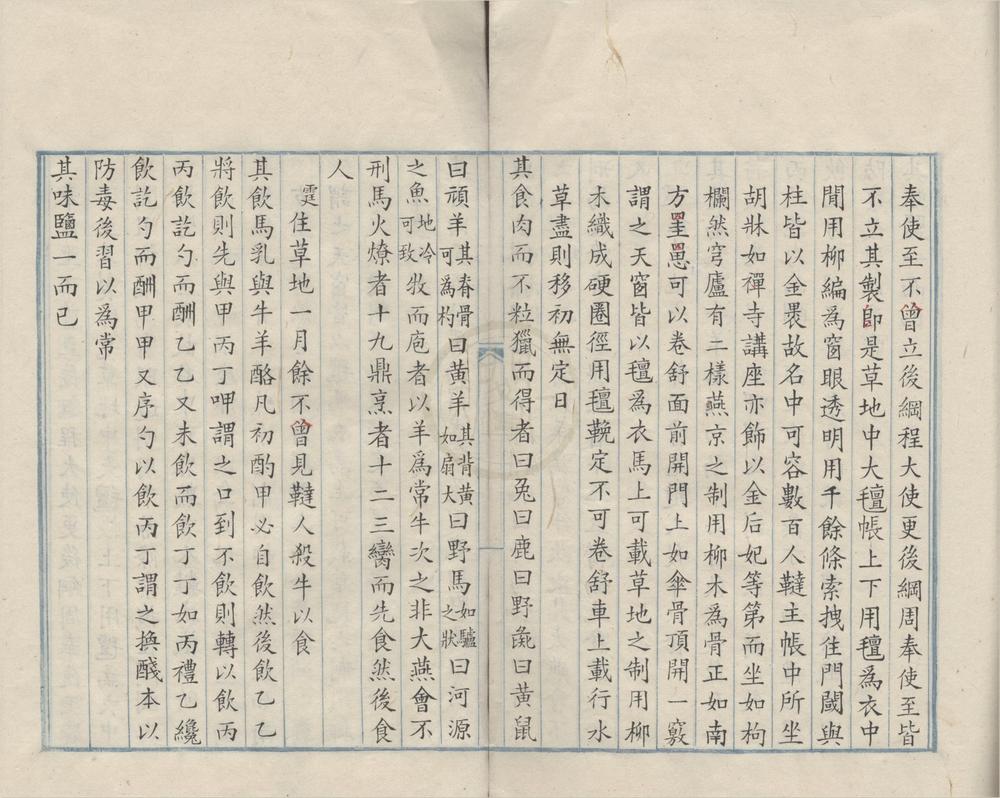 奉使至不曾立後綱程大使更後綱周奉使至皆
不立其製即是草地中大氊帳上下用氊爲衣中
間用柳編爲窗眼透明用千餘條索拽住門閾與
柱皆以金裹故名中可容數百人韃主帳中所坐
胡牀如禪寺講座亦飾以金后妃等第而坐如枸
欄然穹廬有二樣燕京之制用柳木爲骨正如南
方罣罳可以卷舒面前開門上如傘骨頂開一竅
謂之天窗皆以氊爲衣馬上可載草地之制用柳
木織成硬圈徑用氊鞔定不可卷舒車上載行水
草盡則移初無定日
其食肉而不粒獵而得者曰兔曰鹿曰野彘曰黄鼠
曰頑羊其脊骨可為杓曰黄羊其背黄如扇大曰野馬如驢之狀曰河源
之魚地冷可致牧而庖者以羊爲常牛次之非大燕會不
刑馬火燎者十九鼎烹者十二三臠而先食然後食
人
霆住草地一月餘不曾見韃人殺牛以食
其飲馬乳與牛羊酪凡初酌甲必自飲然後飲乙乙
將飲則先與甲丙丁呷謂之口到不飲則轉以飲丙
丙飲訖勺而酬乙乙又未飲而飲丁丁如丙禮乙纔
飲訖勺而酬甲甲又序勺以飲丙丁謂之換醆本以
防毒後習以為常
其味鹽一而已